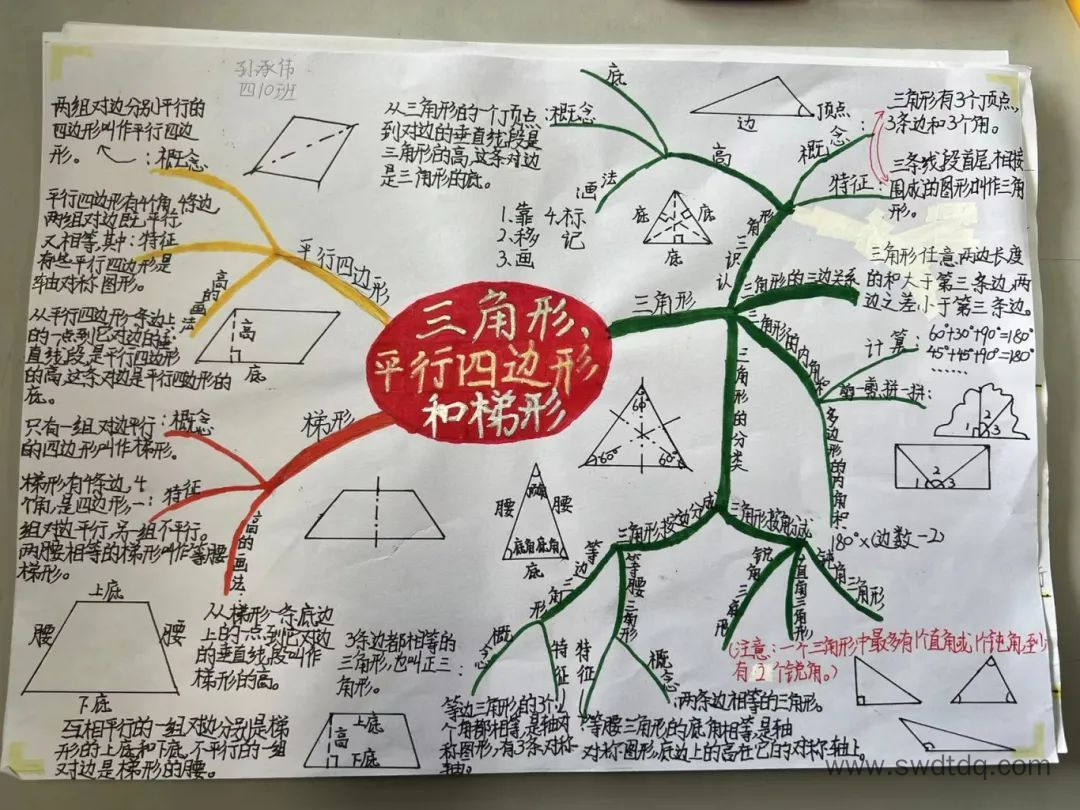 孙承伟
四10班
三角形、
平行四边形
和梯形
平行四边形
两组对边分别平行的
四边形叫作平行四边
形。
:概念
平行四边形有4个角,4条边,
两组对边既平行
又相等,其中:特征
有些平行四边形是
轴对称图形。
高的画法
从平行四边形一条边上
的一点到它对边的垂
直线段是平行四边形
的高,这条对边是平行四边形的
底。
高
底
梯形
只有一组对边平行:概念
的四边形叫作梯形。
梯形有4条边,4
个角,是四边形,一:特征
组对边平行,另一组不平行。
两腰相等的梯形叫作等腰
梯形。
高的画法:
从梯形一条底边
上的一点到它对边
的垂直线段叫作
梯形的高。
上底
腰
腰
下底
互相平行的一组对边分别是梯
形的上底和下底,不平行的一组
对边是梯形的腰。
上底
高
下底
三角形
认识三角形
高
底
从三角形的一个顶点:概念
到对边的垂直线段是
三角形的高,这条对边
是三角形的底。
画法
1.靠 4.标
2.移 记
3.画
底
底
底
顶点
边
概念
特征:
三角形有3个顶点,
3条边和3个角。
三条线段首尾相接
围成的图形叫作三角
形。
三角形的三边关系
三角形任意两边长度
的和大于第三条边,两
边之差小于第三条边。
三角形的内角和
计算:
60°+30°+90°=180°
45°+45°+90°=180°
……
剪一剪,拼一拼:
1 2 3
2
1 3
多边形的内角和:
180°×(边数-2)
三角形的分类
三角形按边分成
三角形按角分成
60°
60°
60°
顶角
腰
腰
底角 底角
底
等边三角形
概念
3条边都相等的
三角形,也叫正三:
角形。
特征
等边三角形的3个
角都相等,是轴对
称图形,有3条对称
轴。
等腰三角形
特征
等腰三角形的底角相等,是轴
对称图形,底边上的高在它的对称轴上。
概念
:两条边相等的三角形。
锐角三角形
直角三角形
钝角三角形
(注意:一个三角形中最多有1个直角或1个钝角,至少
有2个锐角。)
www.swdtdq.com